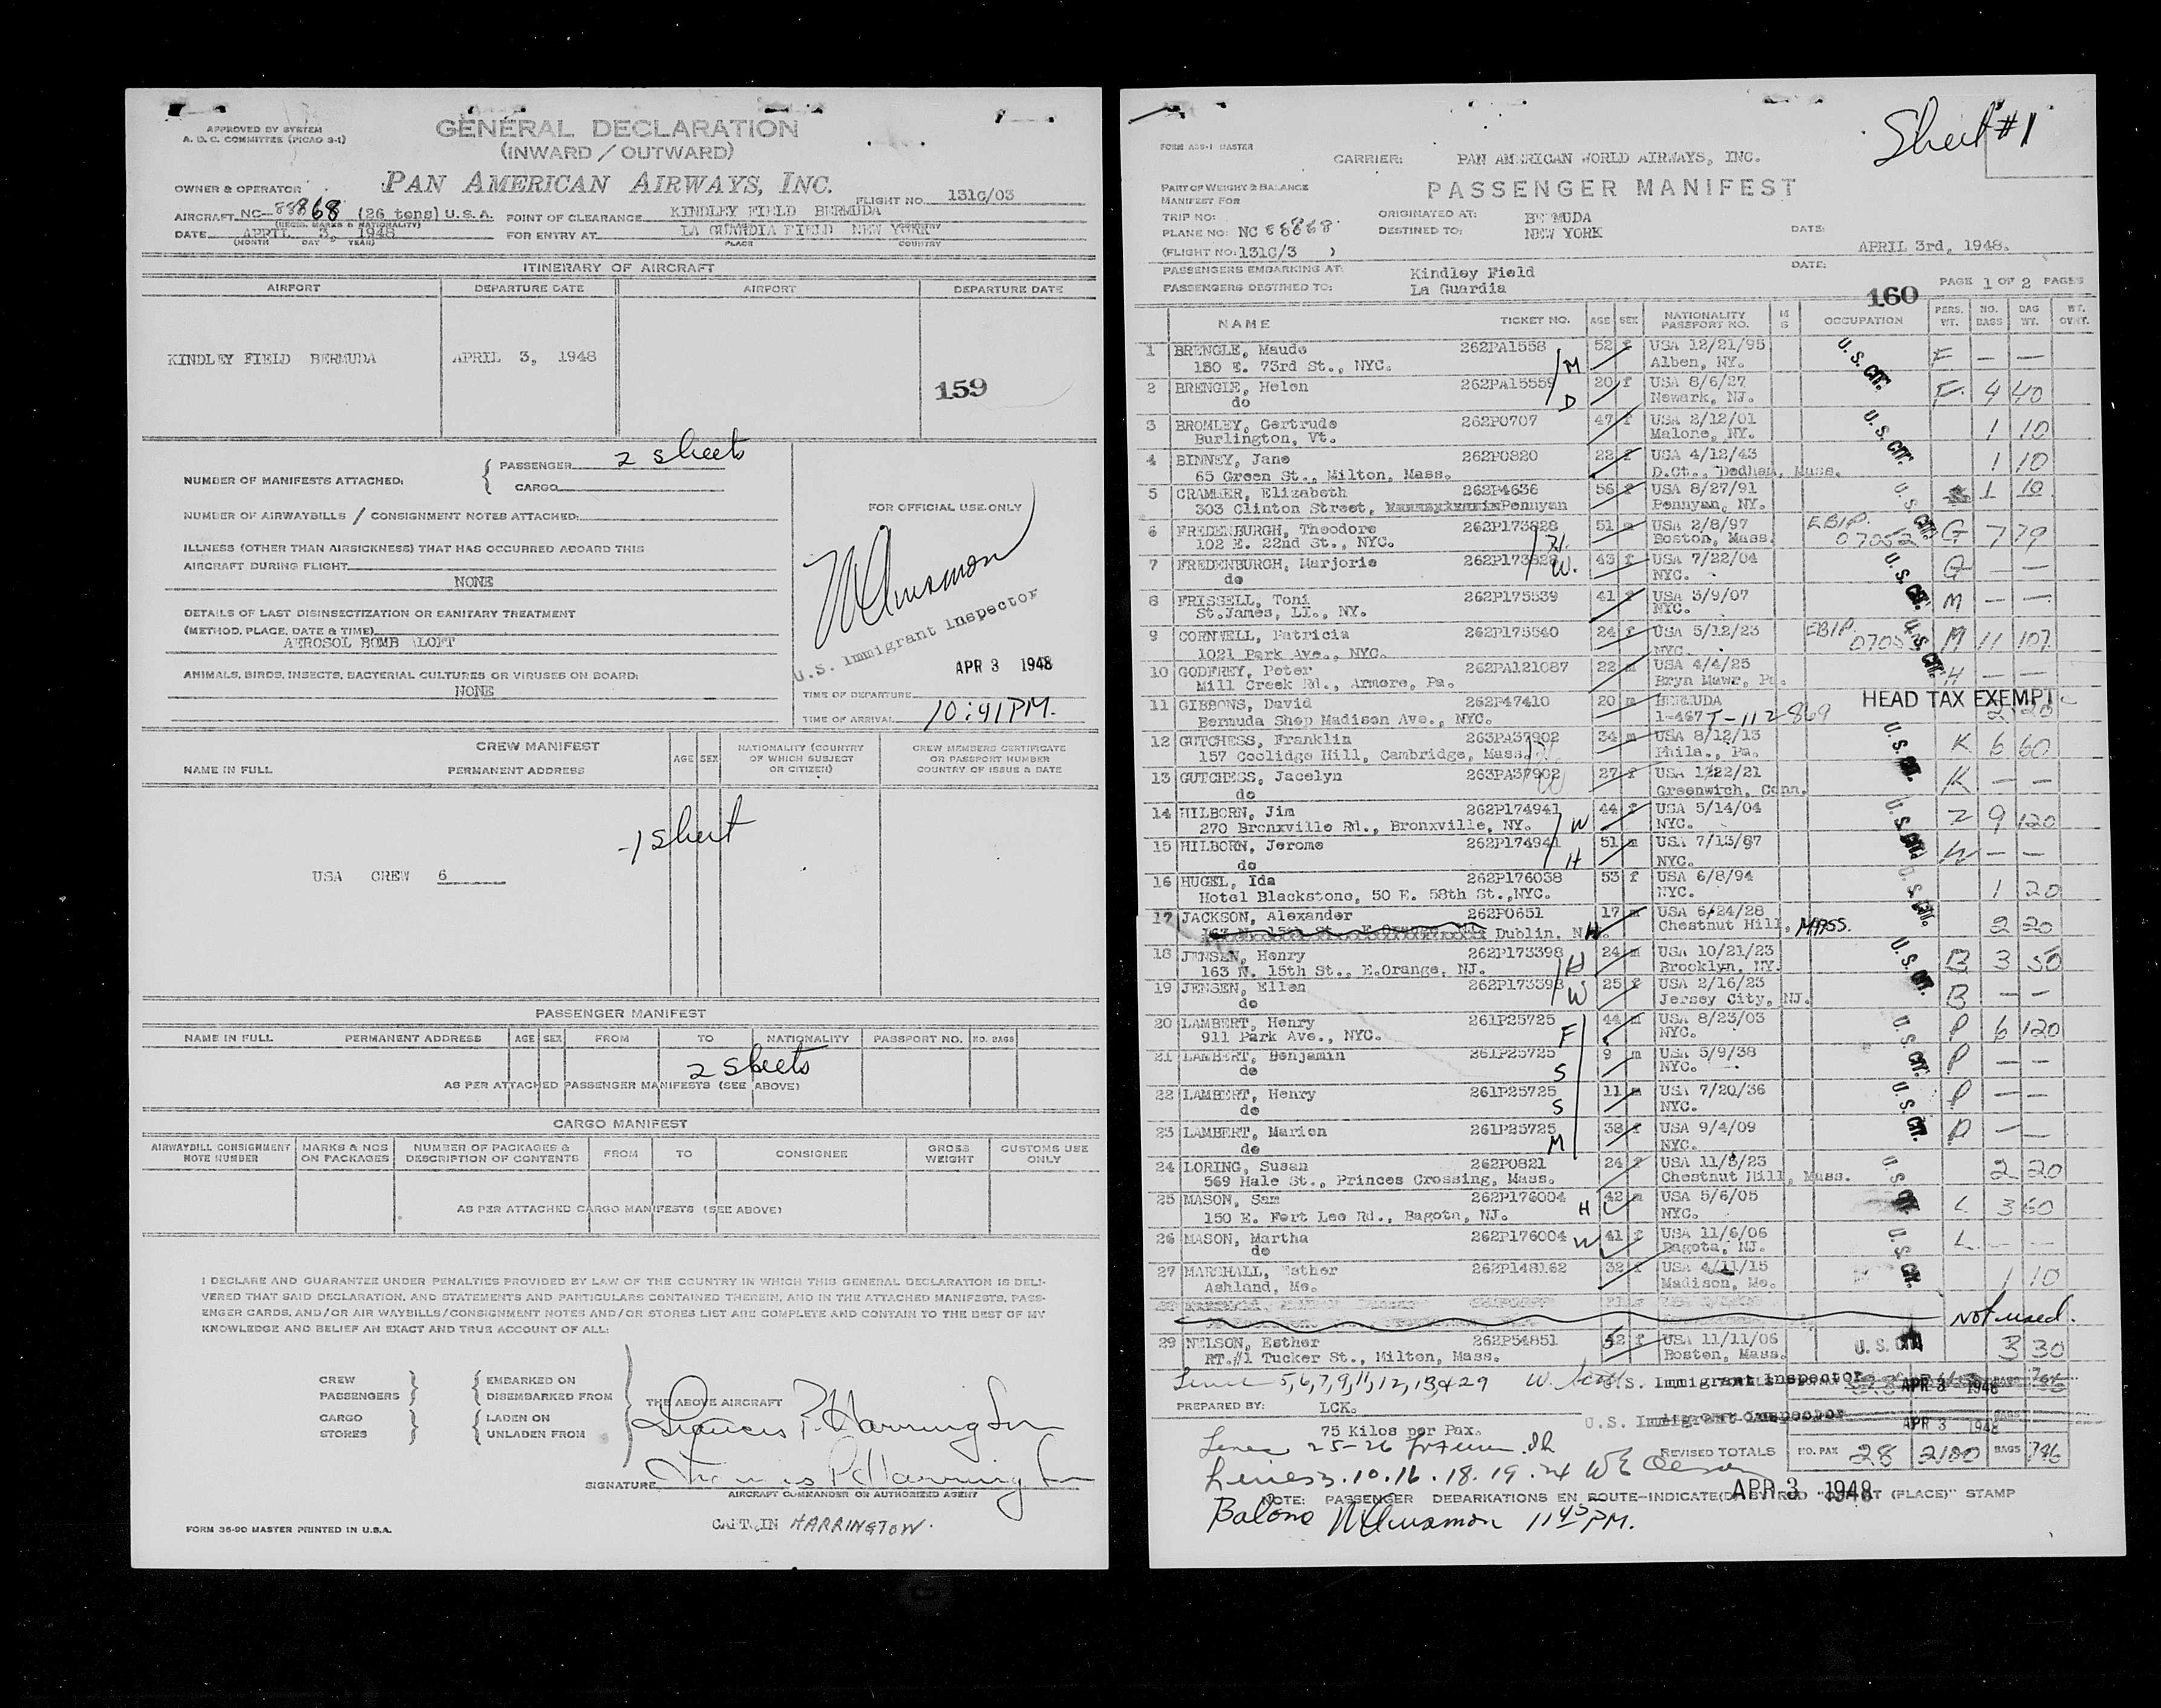 APPROVED BY SYSTEM
A. D. C. COMMITTEE (PICAO 3-1)
GENERAL DECLARATION
(INWARD / OUTWARD)
OWNER & OPERATOR
PAN AMERICAN AIRWAYS, INC.
FLIGHT NO. 131C/03
AIRCRAFT NC-88868 (26 tons) U.S.A. POINT OF CLEARANCE KINDLEY FIELD BERMUDA
(REGIS. MARKS & NATIONALITY) PLACE COUNTRY
DATE APRIL 3, 1948 FOR ENTRY AT LA GUARDIA FIELD NEW YORK
(MONTH DAY YEAR) PLACE COUNTRY
ITINERARY OF AIRCRAFT
AIRPORT DEPARTURE DATE AIRPORT DEPARTURE DATE
KINDLEY FIELD BERMUDA APRIL 3, 1948
159
NUMBER OF MANIFESTS ATTACHED: { PASSENGER 2 sheets
CARGO
FOR OFFICIAL USE ONLY
NUMBER OF AIRWAYBILLS / CONSIGNMENT NOTES ATTACHED:
ILLNESS (OTHER THAN AIRSICKNESS) THAT HAS OCCURRED ABOARD THIS
AIRCRAFT DURING FLIGHT
NONE
DETAILS OF LAST DISINSECTIZATION OR SANITARY TREATMENT
(METHOD, PLACE, DATE & TIME)
AEROSOL BOMB ALOFT
U.S. Immigrant Inspector
APR 3 1948
ANIMALS, BIRDS, INSECTS, BACTERIAL CULTURES OR VIRUSES ON BOARD:
NONE
TIME OF DEPARTURE
TIME OF ARRIVAL 10:41 PM.
CREW MANIFEST
NAME IN FULL PERMANENT ADDRESS AGE SEX NATIONALITY (COUNTRY OF WHICH SUBJECT OR CITIZEN) CREW MEMBERS CERTIFICATE OR PASSPORT NUMBER COUNTRY OF ISSUE & DATE
-1 sheet
USA CREW 6
PASSENGER MANIFEST
NAME IN FULL PERMANENT ADDRESS AGE SEX FROM TO NATIONALITY PASSPORT NO. NO. BAGS
2 sheets
AS PER ATTACHED PASSENGER MANIFESTS (SEE ABOVE)
CARGO MANIFEST
AIRWAYBILL CONSIGNMENT NOTE NUMBER MARKS & NOS ON PACKAGES NUMBER OF PACKAGES & DESCRIPTION OF CONTENTS FROM TO CONSIGNEE GROSS WEIGHT CUSTOMS USE ONLY
AS PER ATTACHED CARGO MANIFESTS (SEE ABOVE)
I DECLARE AND GUARANTEE UNDER PENALTIES PROVIDED BY LAW OF THE COUNTRY IN WHICH THIS GENERAL DECLARATION IS DELI-
VERED THAT SAID DECLARATION, AND STATEMENTS AND PARTICULARS CONTAINED THEREIN, AND IN THE ATTACHED MANIFESTS, PASS-
ENGER CARDS, AND/OR AIR WAYBILLS/CONSIGNMENT NOTES AND/OR STORES LIST ARE COMPLETE AND CONTAIN TO THE BEST OF MY
KNOWLEDGE AND BELIEF AN EXACT AND TRUE ACCOUNT OF ALL:
CREW EMBARKED ON
PASSENGERS DISEMBARKED FROM
THE ABOVE AIRCRAFT
CARGO LADEN ON
STORES UNLADEN FROM
Francis P. Harrington
SIGNATURE Francis P. Harrington
AIRCRAFT COMMANDER OR AUTHORIZED AGENT
CAPTAIN HARRINGTON.
FORM 35-90 MASTER PRINTED IN U.S.A.
Sheet #1
CARRIER: PAN AMERICAN WORLD AIRWAYS, INC.
PART OF WEIGHT & BALANCE
MANIFEST FOR
PASSENGER MANIFEST
TRIP NO: ORIGINATED AT: BERMUDA
PLANE NO: NC 88868 DESTINED TO: NEW YORK DATE:
(FLIGHT NO: 131C/3 ) APRIL 3rd, 1948.
PASSENGERS EMBARKING AT: Kindley Field DATE:
PASSENGERS DESTINED TO: La Guardia
160 PAGE 1 OF 2 PAGES
NAME TICKET NO. AGE SEX NATIONALITY PASSPORT NO. OCCUPATION PERS. WT. NO. BAGS BAG WT. WT. OVWT.
1 BRENGLE, Maude 262PA1558 52 f USA 12/21/95 F — —
150 E. 73rd St., NYC. M Alben, NY. U. S. CIT.
2 BRENGLE, Helen 262PA15559 20 f USA 8/6/27 F. 4 40
do D Newark, NJ.
3 BROMLEY, Gertrude 262P0707 47 f USA 2/12/01 1 10
Burlington, Vt. Malone, NY. U. S. CIT.
4 BINNEY, Jane 262P0820 22 f USA 4/12/43 1 10
65 Green St., Milton, Mass. D.Ct., Dedham, Mass.
5 CRAMMER, Elizabeth 262P4636 56 f USA 8/27/91 1 10
303 Clinton Street, Pennyan Pennyan, NY. U. S. CIT.
6 FREDENBURGH, Theodore 262P173828 51 m USA 2/8/97 G 7 79
102 E. 22nd St., NYC. H. Boston, Mass.
7 FREDENBURGH, Marjorie 262P173828 43 f USA 7/22/04 G — —
do W. NYC. U. S. CIT.
8 FRISSELL, Toni 262P175539 41 f USA 3/9/07 M — —
St.James, LI., NY. NYC.
9 CORNWELL, Patricia 262P175540 24 f USA 5/12/23 M 11 107
1021 Park Ave., NYC. NYC. U. S. CIT.
10 GODFREY, Peter 262PA121087 22 m USA 4/4/25 H — —
Mill Creek Rd., Armore, Pa. Bryn Mawr, Pa.
11 GIBBONS, David 262P47410 20 m BERMUDA HEAD TAX EXEMPT
Bermuda Shop Madison Ave., NYC. 1-467 T-112869 2 20
12 GUTCHESS, Franklin 263PA37902 34 m USA 8/12/13 K 6 60
157 Coolidge Hill, Cambridge, Mass. Phila., Pa. U. S. CIT.
13 GUTCHESS, Jacelyn 263PA37902 27 f USA 1/22/21 K — —
do W Greenwich, Conn.
14 HILBORN, Jim 262P174941 44 f USA 5/14/04 Z 9 120
270 Bronxville Rd., Bronxville, NY. W NYC. U. S. CIT.
15 HILBORN, Jerome 262P174941 51 m USA 7/13/97 — —
do H NYC.
16 HUGEL, Ida 262P176038 53 f USA 6/8/94 1 20
Hotel Blackstone, 50 E. 58th St.,NYC. NYC. U. S. CIT.
17 JACKSON, Alexander 262P0651 17 m USA 6/24/28 2 20
Dublin, NH. Chestnut Hill, MASS.
18 JENSEN, Henry 262P173398 24 m USA 10/21/23 B 3 50
163 N. 15th St., E.Orange, NJ. H Brooklyn, NY. U. S. CIT.
19 JENSEN, Ellen 262P173398 25 f USA 2/16/23 B — —
do W Jersey City, NJ.
20 LAMBERT, Henry 261P25725 44 m USA 8/23/03 P 6 120
911 Park Ave., NYC. F NYC. U. S. CIT.
21 LAMBERT, Benjamin 261P25725 9 m USA 5/9/38 P — —
do S NYC.
22 LAMBERT, Henry 261P25725 11 m USA 7/20/36 P — —
do S NYC. U. S. CIT.
23 LAMBERT, Marion 261P25725 38 f USA 9/4/09 P — —
do M NYC.
24 LORING, Susan 262P0821 24 f USA 11/8/23 2 20
569 Hale St., Princes Crossing, Mass. Chestnut Hill, Mass. U. S. CIT.
25 MASON, Sam 262P176004 42 m USA 5/6/05 L 3 60
150 E. Fort Lee Rd., Bagota, NJ. H NYC.
26 MASON, Martha 262P176004 W 41 f USA 11/6/06 L — —
do Bagota, NJ. U. S. CIT.
27 MARSHALL, Esther 262P148162 32 f USA 4/11/15 1 10
Ashland, Me. Madison, Me.
Not used.
29 NELSON, Esther 262P54851 52 f USA 11/11/06 3 30
RT.#1 Tucker St., Milton, Mass. Boston, Mass. U. S. CIT.
Lines 5,6,7,9,11,12,13,&29 U.S. Immigrant Inspector APR 3 1948
PREPARED BY: LCK.
U.S. Immigrant Inspector APR 3 1948
75 Kilos per Pax.
Lines 25-26
REVISED TOTALS NO. PAX 28 2100 BAGS 746
Lines 3.10.16.18.19.24
NOTE: PASSENGER DEBARKATIONS EN ROUTE-INDICATE(D) BY RED (PLACE)" STAMP
APR 3 1948
11 45 PM.